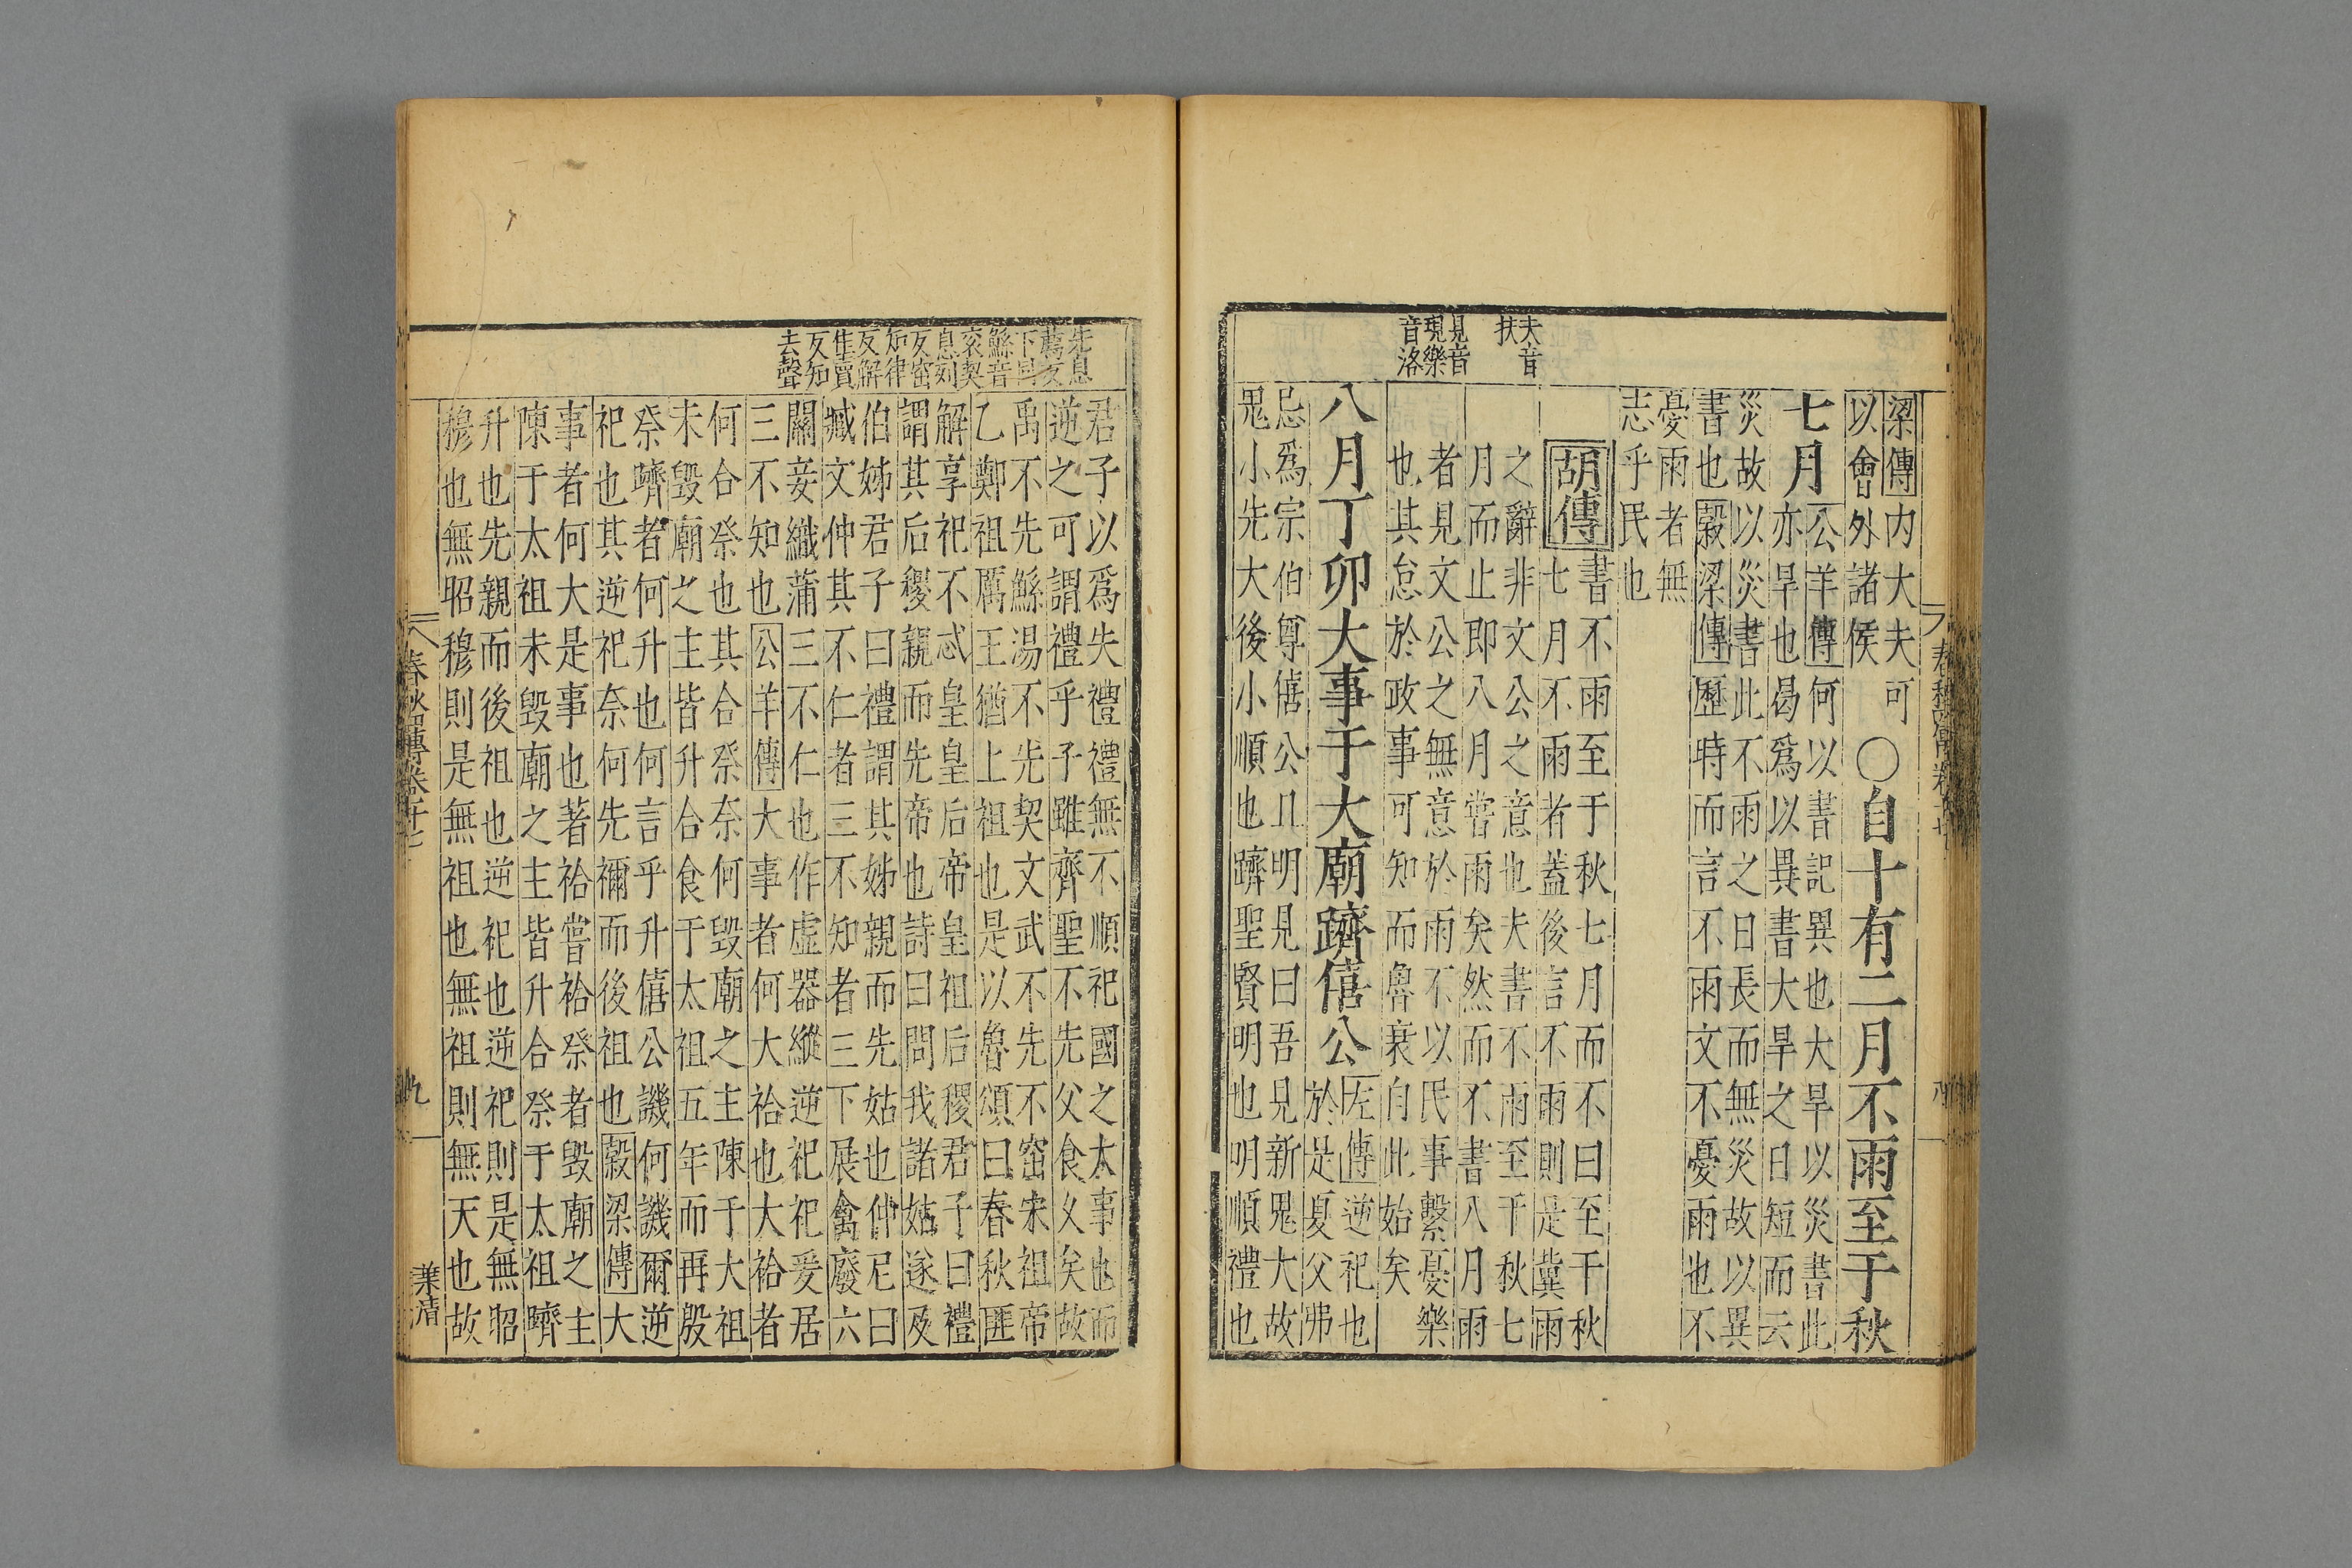 夫音
扶
見音
現樂
音洛
梁傳内大夫可
以會外諸侯
○自十有二月不雨至于秋
七月
公羊傳何以書記異也大旱以災書此
亦旱也曷爲以異書大旱之日短而云
災故以災書此不雨之日長而無災故以異
書也穀梁傳歷時而言不雨文不憂雨也不
憂雨者無
志乎民也
胡傳
書不雨至于秋七月而不曰至于秋
七月不雨者蓋後言不雨則是冀雨
之辭非文公之意也夫書不雨至于秋七
月而止即八月嘗雨矣然而不書八月雨
者見文公之無意於雨不以民事繫憂樂
也其怠於政事可知而魯衰自此始矣
八月丁卯大事于大廟躋僖公
左傳逆祀也
於是夏父弗
忌爲宗伯尊僖公且明見曰吾見新鬼大故
鬼小先大後小順也躋聖賢明也明順禮也
先息
薦反
下同
鯀音
衮契
息列
反窋
知律
反解
隹賣
反知
去聲
君子以爲失禮禮無不順祀國之大事也而
逆之可謂禮乎子雖齊聖不先父食乆矣故
禹不先鯀湯不先契文武不先不窋宋祖帝
乙鄭祖厲王猶上祖也是以魯頌曰春秋匪
解享祀不忒皇皇后帝皇祖后稷君子曰禮
謂其后稷親而先帝也詩曰問我諸姑遂及
伯姊君子曰禮謂其姊親而先姑也仲尼曰
臧文仲其不仁者三不知者三下展禽廢六
關妾織蒲三不仁也作虛器縱逆祀祀爰居
三不知也公羊傳大事者何大祫也大祫者
何合祭也其合祭奈何毀廟之主陳于大祖
未毀廟之主皆升合食于太祖五年而再殷
祭躋者何升也何言乎升僖公譏何譏爾逆
祀也其逆祀奈何先禰而後祖也穀梁傳大
事者何大是事也著祫嘗祫祭者毀廟之主
陳于太祖未毀廟之主皆升合祭于太祖躋
升也先親而後祖也逆祀也逆祀則是無昭
穆也無昭穆則是無祖也無祖則無天也故
春秋四傳卷十七
九
葉清